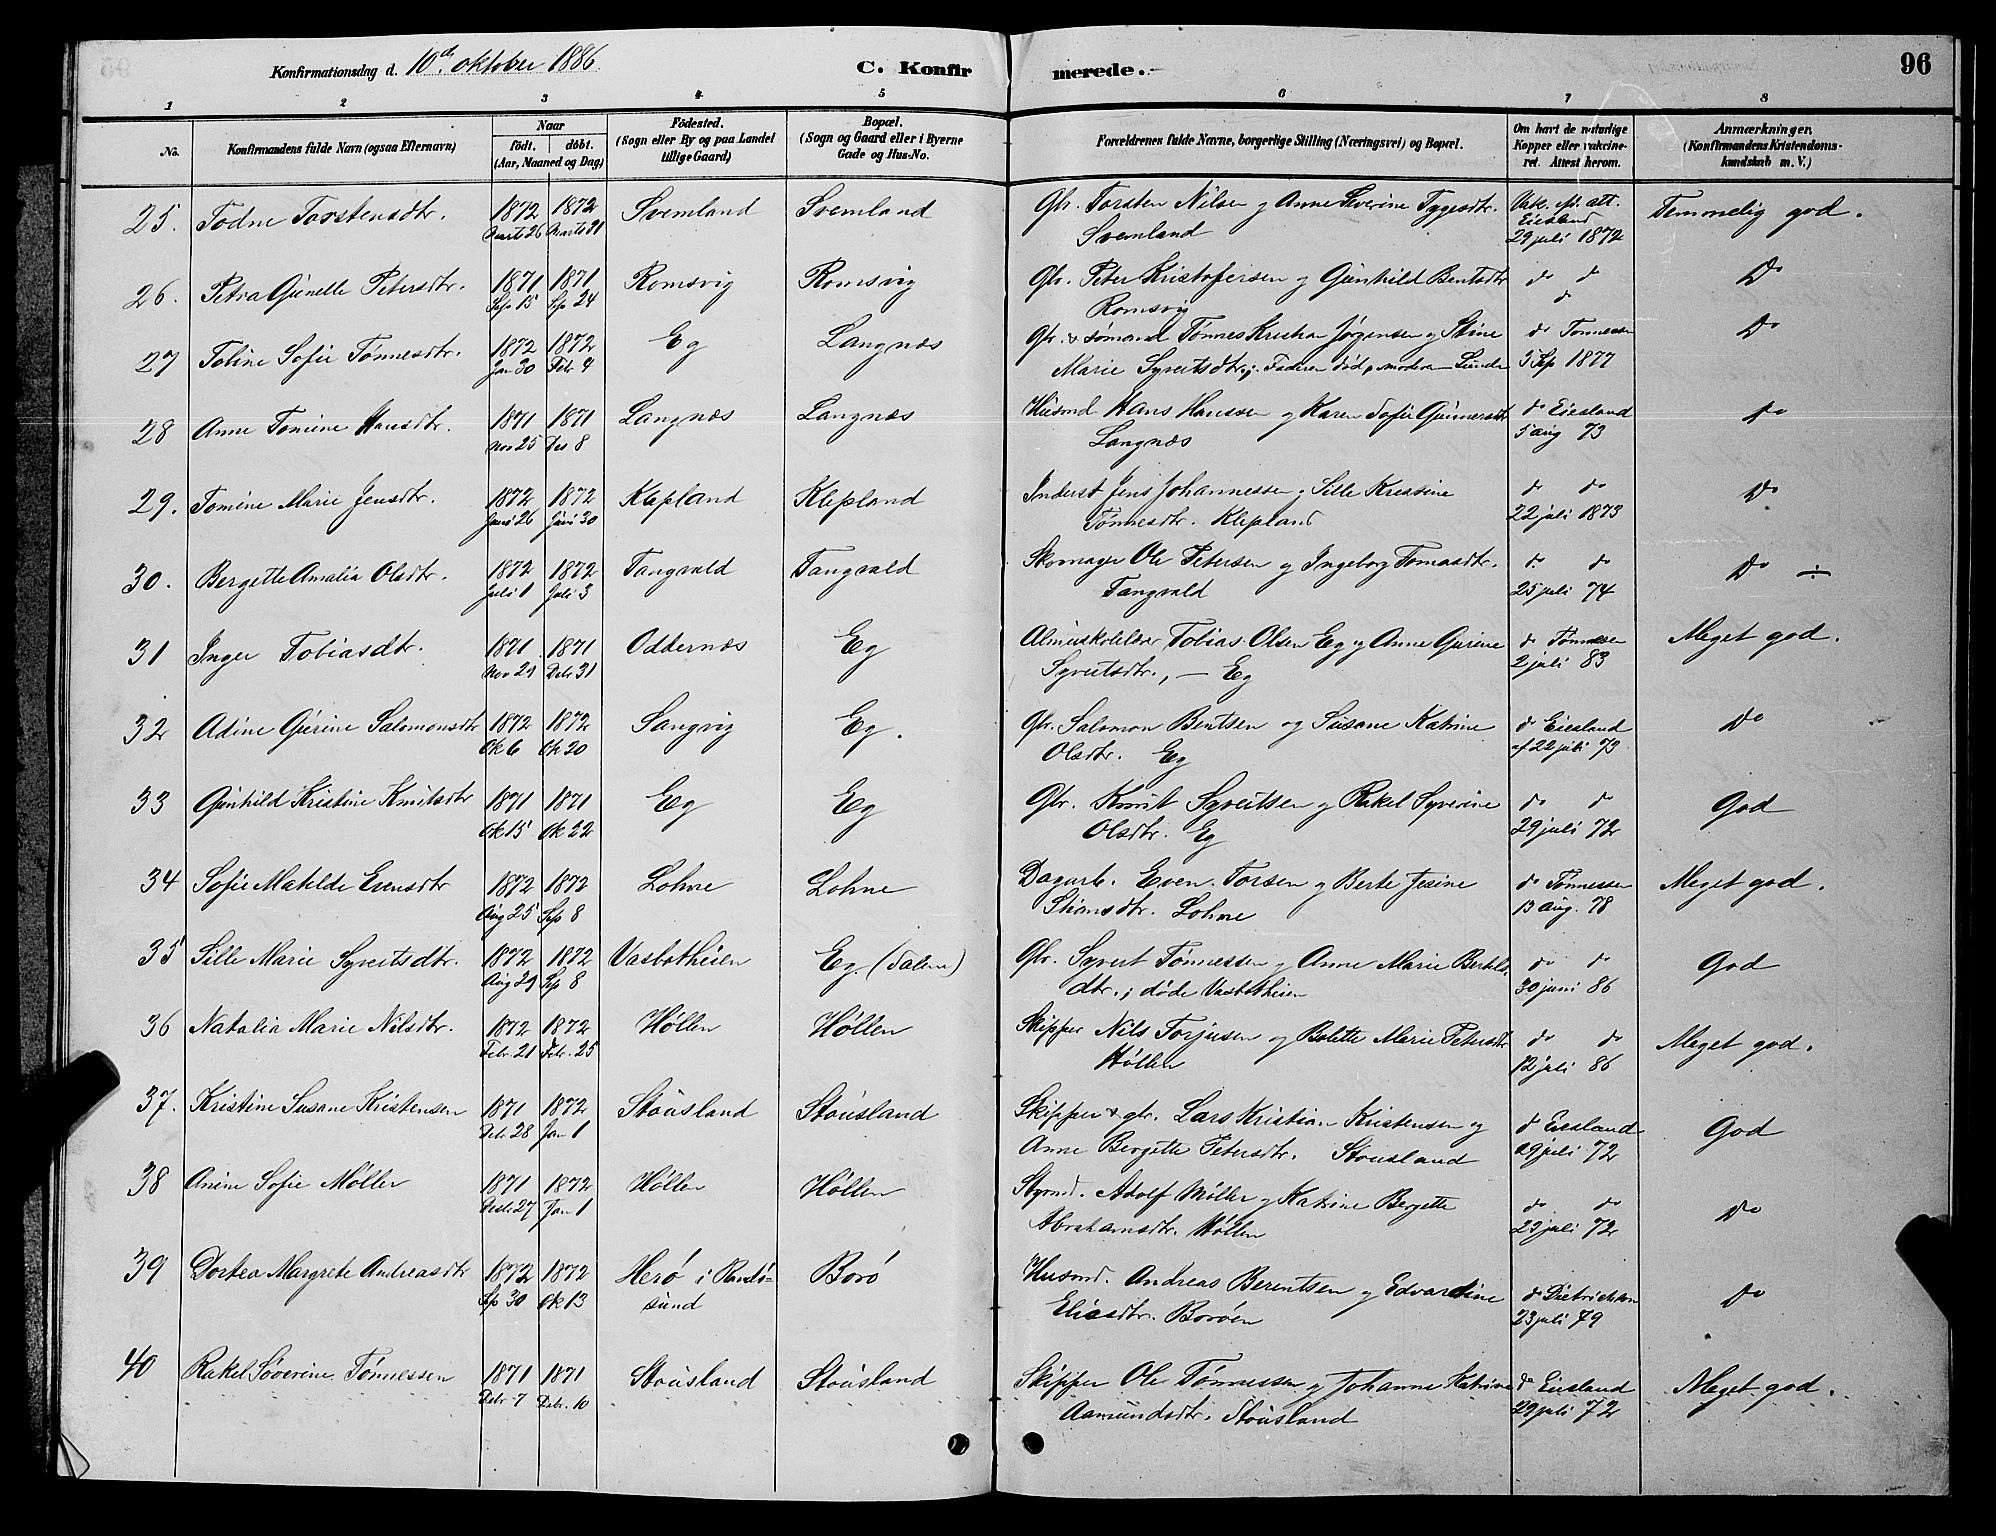 Konfirmationsdag d. 10de oktober 1886.
C. Konfirmerede.
96
1 2 3 4 5 6 7 8
No. Konfirmandens fulde Navn (ogsaa Efternavn) Naar født. døbt. (Aar, Maaned og Dag) Fødested. (Sogn eller By og paa Landet tillige Gaard) Bopæl. (Sogn og Gaard eller i Byerne Gade og Hus-No. Forældrenes fulde Navne, borgerlige Stilling (Næringsvei) og Bopæl. Om havt de naturlige Kopper eller vakcineret. Attest herom. Anmærkninger. (Konfirmandens Kristendomskundskab m. V.)
25. Todne Torstensdtr. 1872 1872 Svemland Svemland Gbr. Torsten Nilsen og Anne Severine Tygesdtr. Vak. att. Temmelig god.
Marts 26 Marts 31 Svemland Eiesland 29 juli 1872
26. Petra Gunelle Petersdtr. 1871 1871 Romsvig Romsvig Gbr. Peter Kristofersen og Gunhild Bentsdtr do do Do
Sep 15 Sp 24 Romsvig do
27 Tobine Sofie Tønnesdtr. 1872 1872 Eg Langnæs Gbr. & sømand Tønnes Kristian Jørgensen og Stine do Tønnessen Do
Jan 30 Febr 4 Marie Syvertsdtr.; Faderen død, moderen Lunde 3 Sep 1877
28 Anne Tomine Hansdtr. 1871 1871 Langnæs Langnæs Husmd Hans Hanssen og Karen Sofie Gunnersdtr do Eiesland Do
Nov 25 Des 8 Langnæs 5 aug 73
29. Tomine Marie Jensdtr. 1872 1872 Klepland Klepland Inderst Jens Johannessen og Sille Kristine do do Do
Juni 26 Juni 30 Tønnesdtr. Klepland 22 juli 1873
30. Bergette Amalia Olsdtr. 1872 1872 Tangvald Tangvald Skomager Ole Petersen og Ingeborg Tomasdtr. do do Do ÷
Juli 1 Juli 3 Tangvald 25 juli 74
31 Inger Tobiasdtr. 1871 1871 Oddernæs Eg Almueskolelærer Tobias Olsen Eg og Anne Gurine do Tønnessen Meget god.
Nov 29 Debr 31 Syvertsdtr., — Eg 2 juli 83
32 Adine Gurine Salomonsdtr 1872 1872 Langvig Eg. Gbr. Salomon Bentsen og Susane Katrine do Eiesland Do
Ok 6 Ok 20 Olsdtr. Eg af 22 juli 73
33 Gunhild Kristine Knutsdtr 1871 1871 Eg Eg Gbr. Knut Syvertsen og Rakel Syverine do do God
Ok 15 Ok 22 Olsdtr. Eg 29 juli 72
34 Sofie Matilde Evensdtr 1872 1872 Lohne Lohne Dagarb. Even Torsen og Berte Jesine do Tønnessen Meget god.
Aug 25 Sep 8 Stiansdtr. Lohne 13 aug. 78
35 Sille Marie Syvertsdtr. 1872 1872 Vasbotheien Eg. Gbr. Syvert Tønnessen og Anne Marie Bertels- do do God
Aug 29 Sep 8 dtr.; døde Vasbotheien 30 juni 86
36 Natalia Marie Nilsdtr. 1872 1872 Høllen Høllen Skipper Nils Torjusen og Bolette Marie Petersdtr do do Meget god.
Febr. 21 Febr. 25 Høllen 12 juli 86
37. Kristine Susane Kristensen 1871 1872 Stousland Stousland Skipper & gbr. Lars Kristian Kristensen og do Eiesland God
Debr 28 Jan 1 Anne Bergette Petersdtr. Stousland 29 juli 72
38 Anine Sofie Møller 1871 1872 Høllen Høllen Styrmd. Adolf Møller og Katrine Bergette do do Do
Desbr 27 Jan 1 Abrahamsdtr. Høllen 23 juli 72
39 Dortea Margrete Andreasdtr 1872 1872 Herø i Randø- Borø Husmd. Andreas Berentsen og Edvardine do Dietrichson Do
Sp 30 Ok 13 sund Eliasdtr. Borøen 23 juli 79
40 Rakel Søverine Tønnessen 1871 1871 Stousland Stousland Skipper Ole Tønnessen og Johanne Katrine do Eiesland Meget god.
Debr 7 Debr. 10 Aamundsdtr. Stousland 29 juli 72